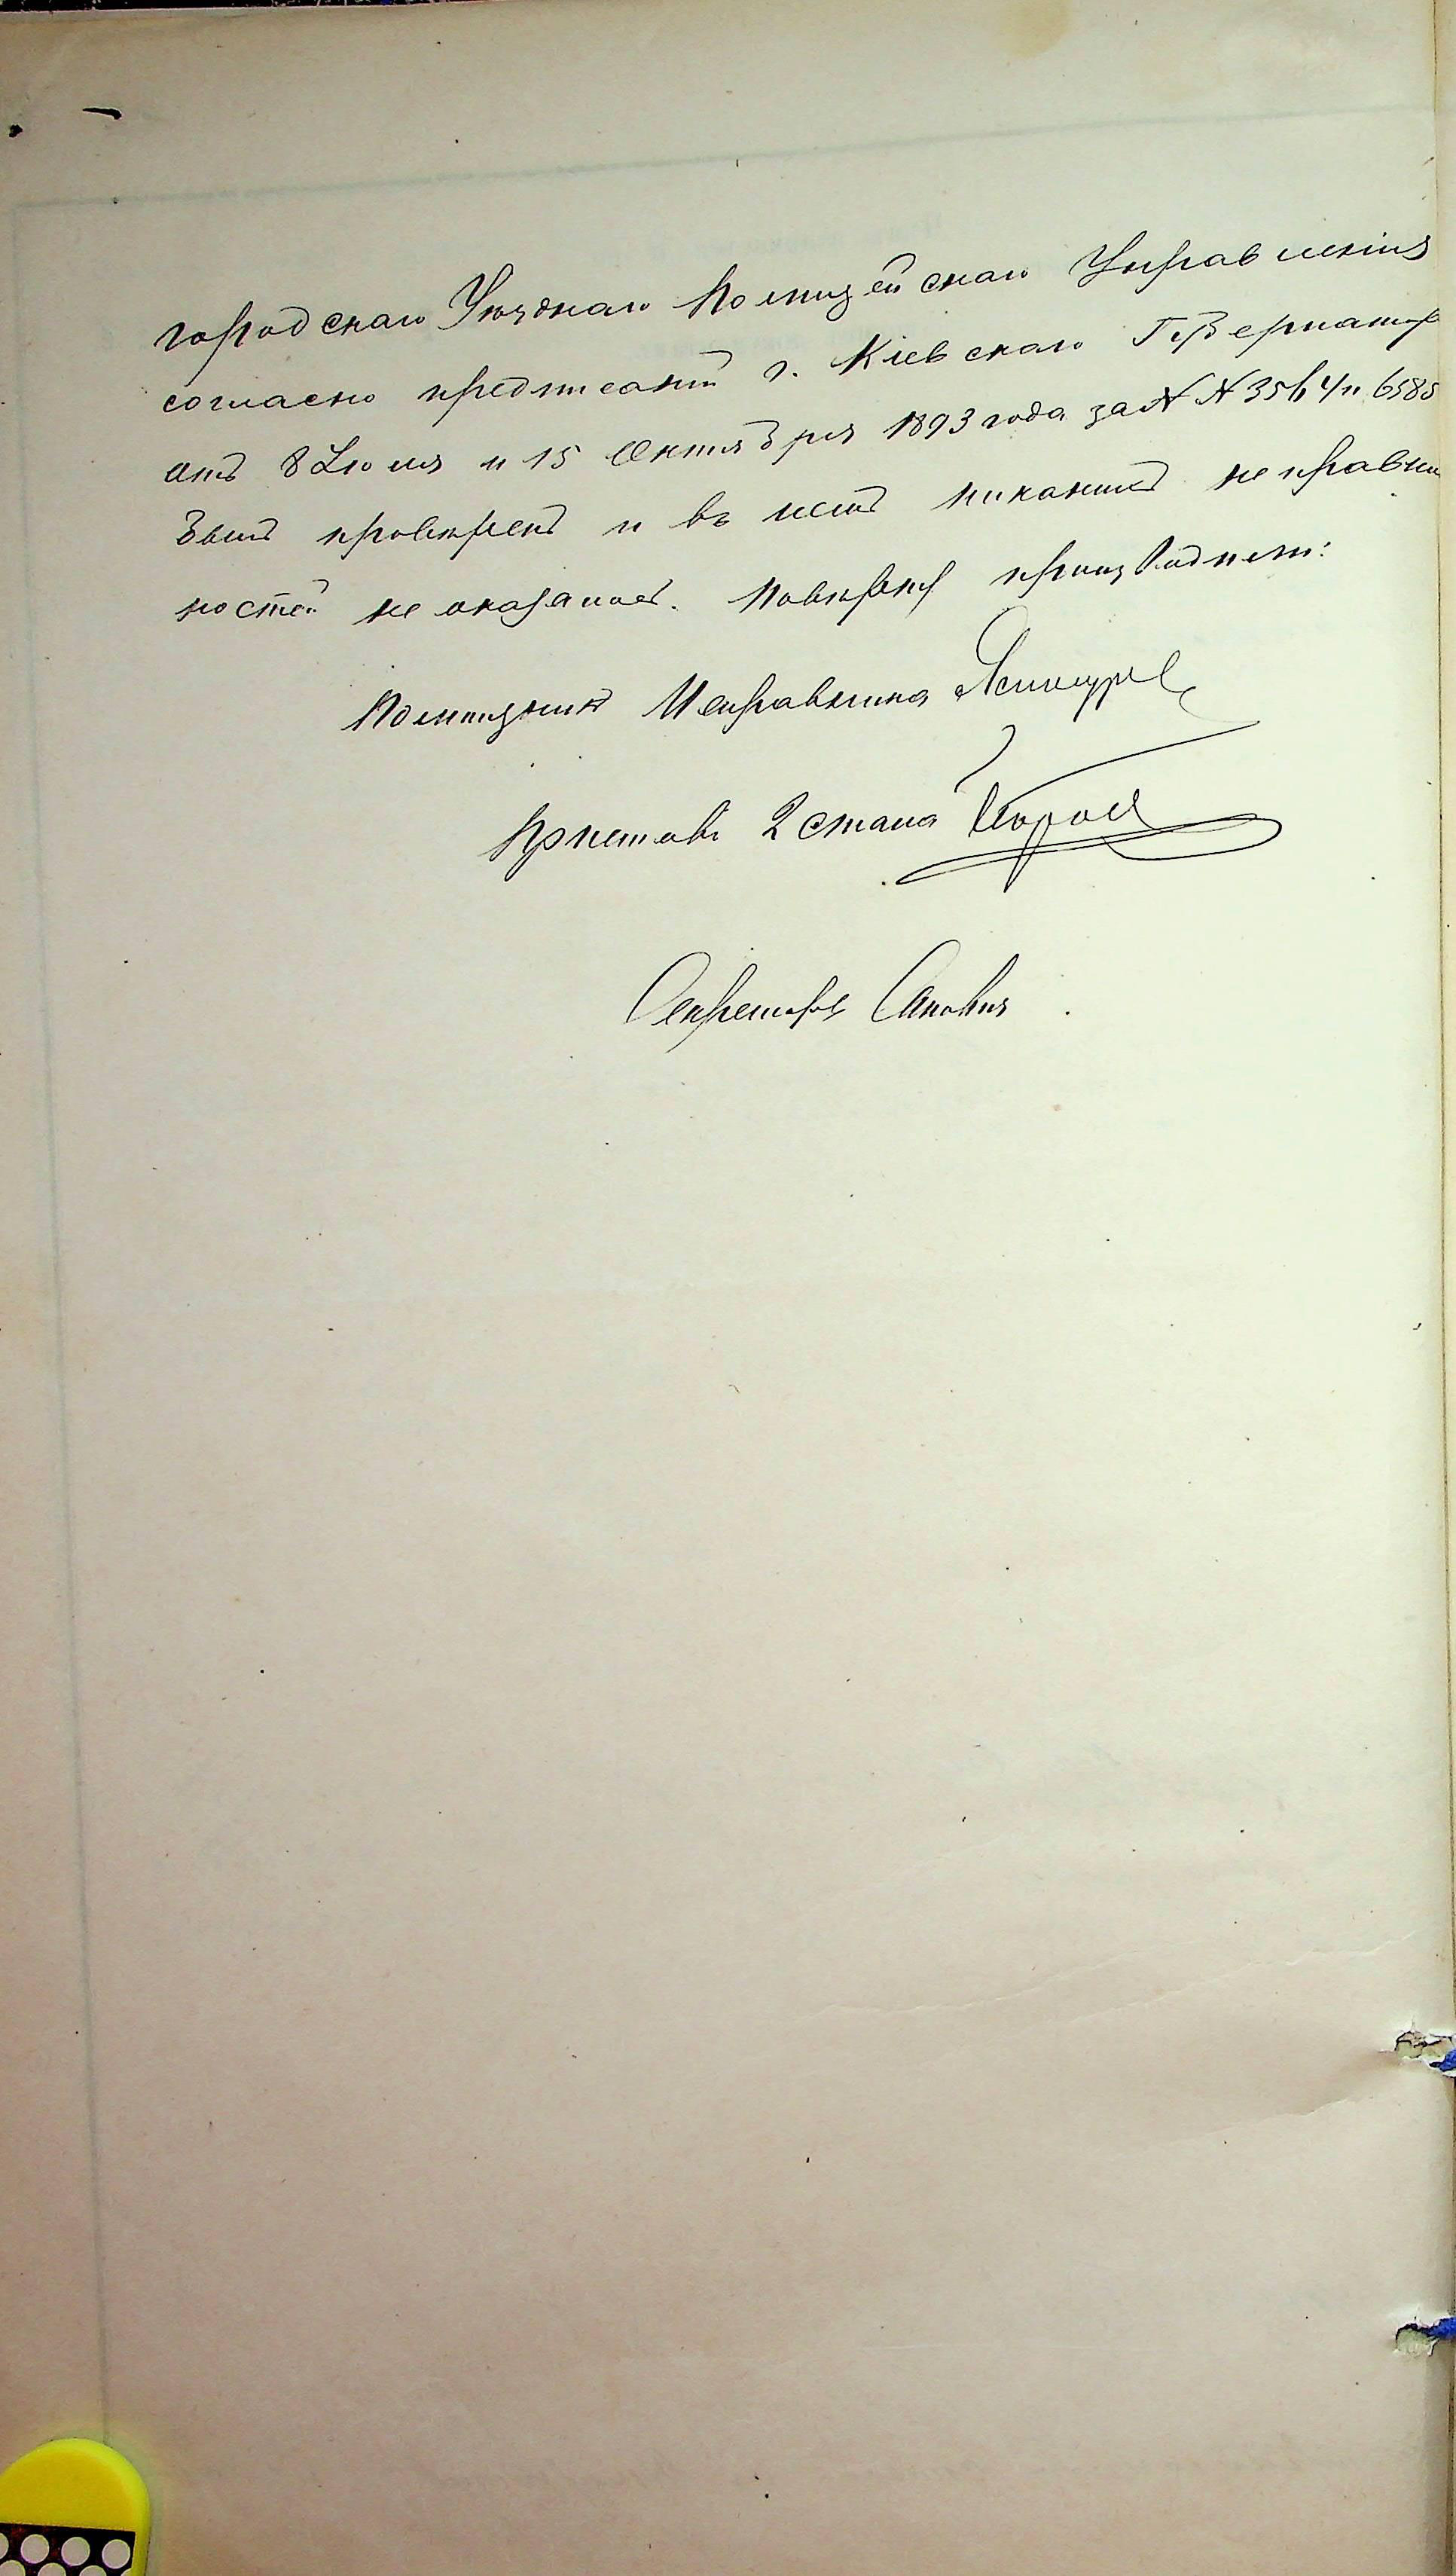 городскаго Уѣзднаго Полицейскаго Управленія
согласно предписаній г. Кіевскаго Губернатора
отъ 8 Іюля и 15 Октября 1893 года за № № 3564 и 6585
былъ провѣренъ и въ немъ никакихъ неправиль
ностей не оказалось. Повѣрку производили:
Помощникъ Исправника
Приставъ 2 стана
Секретарь